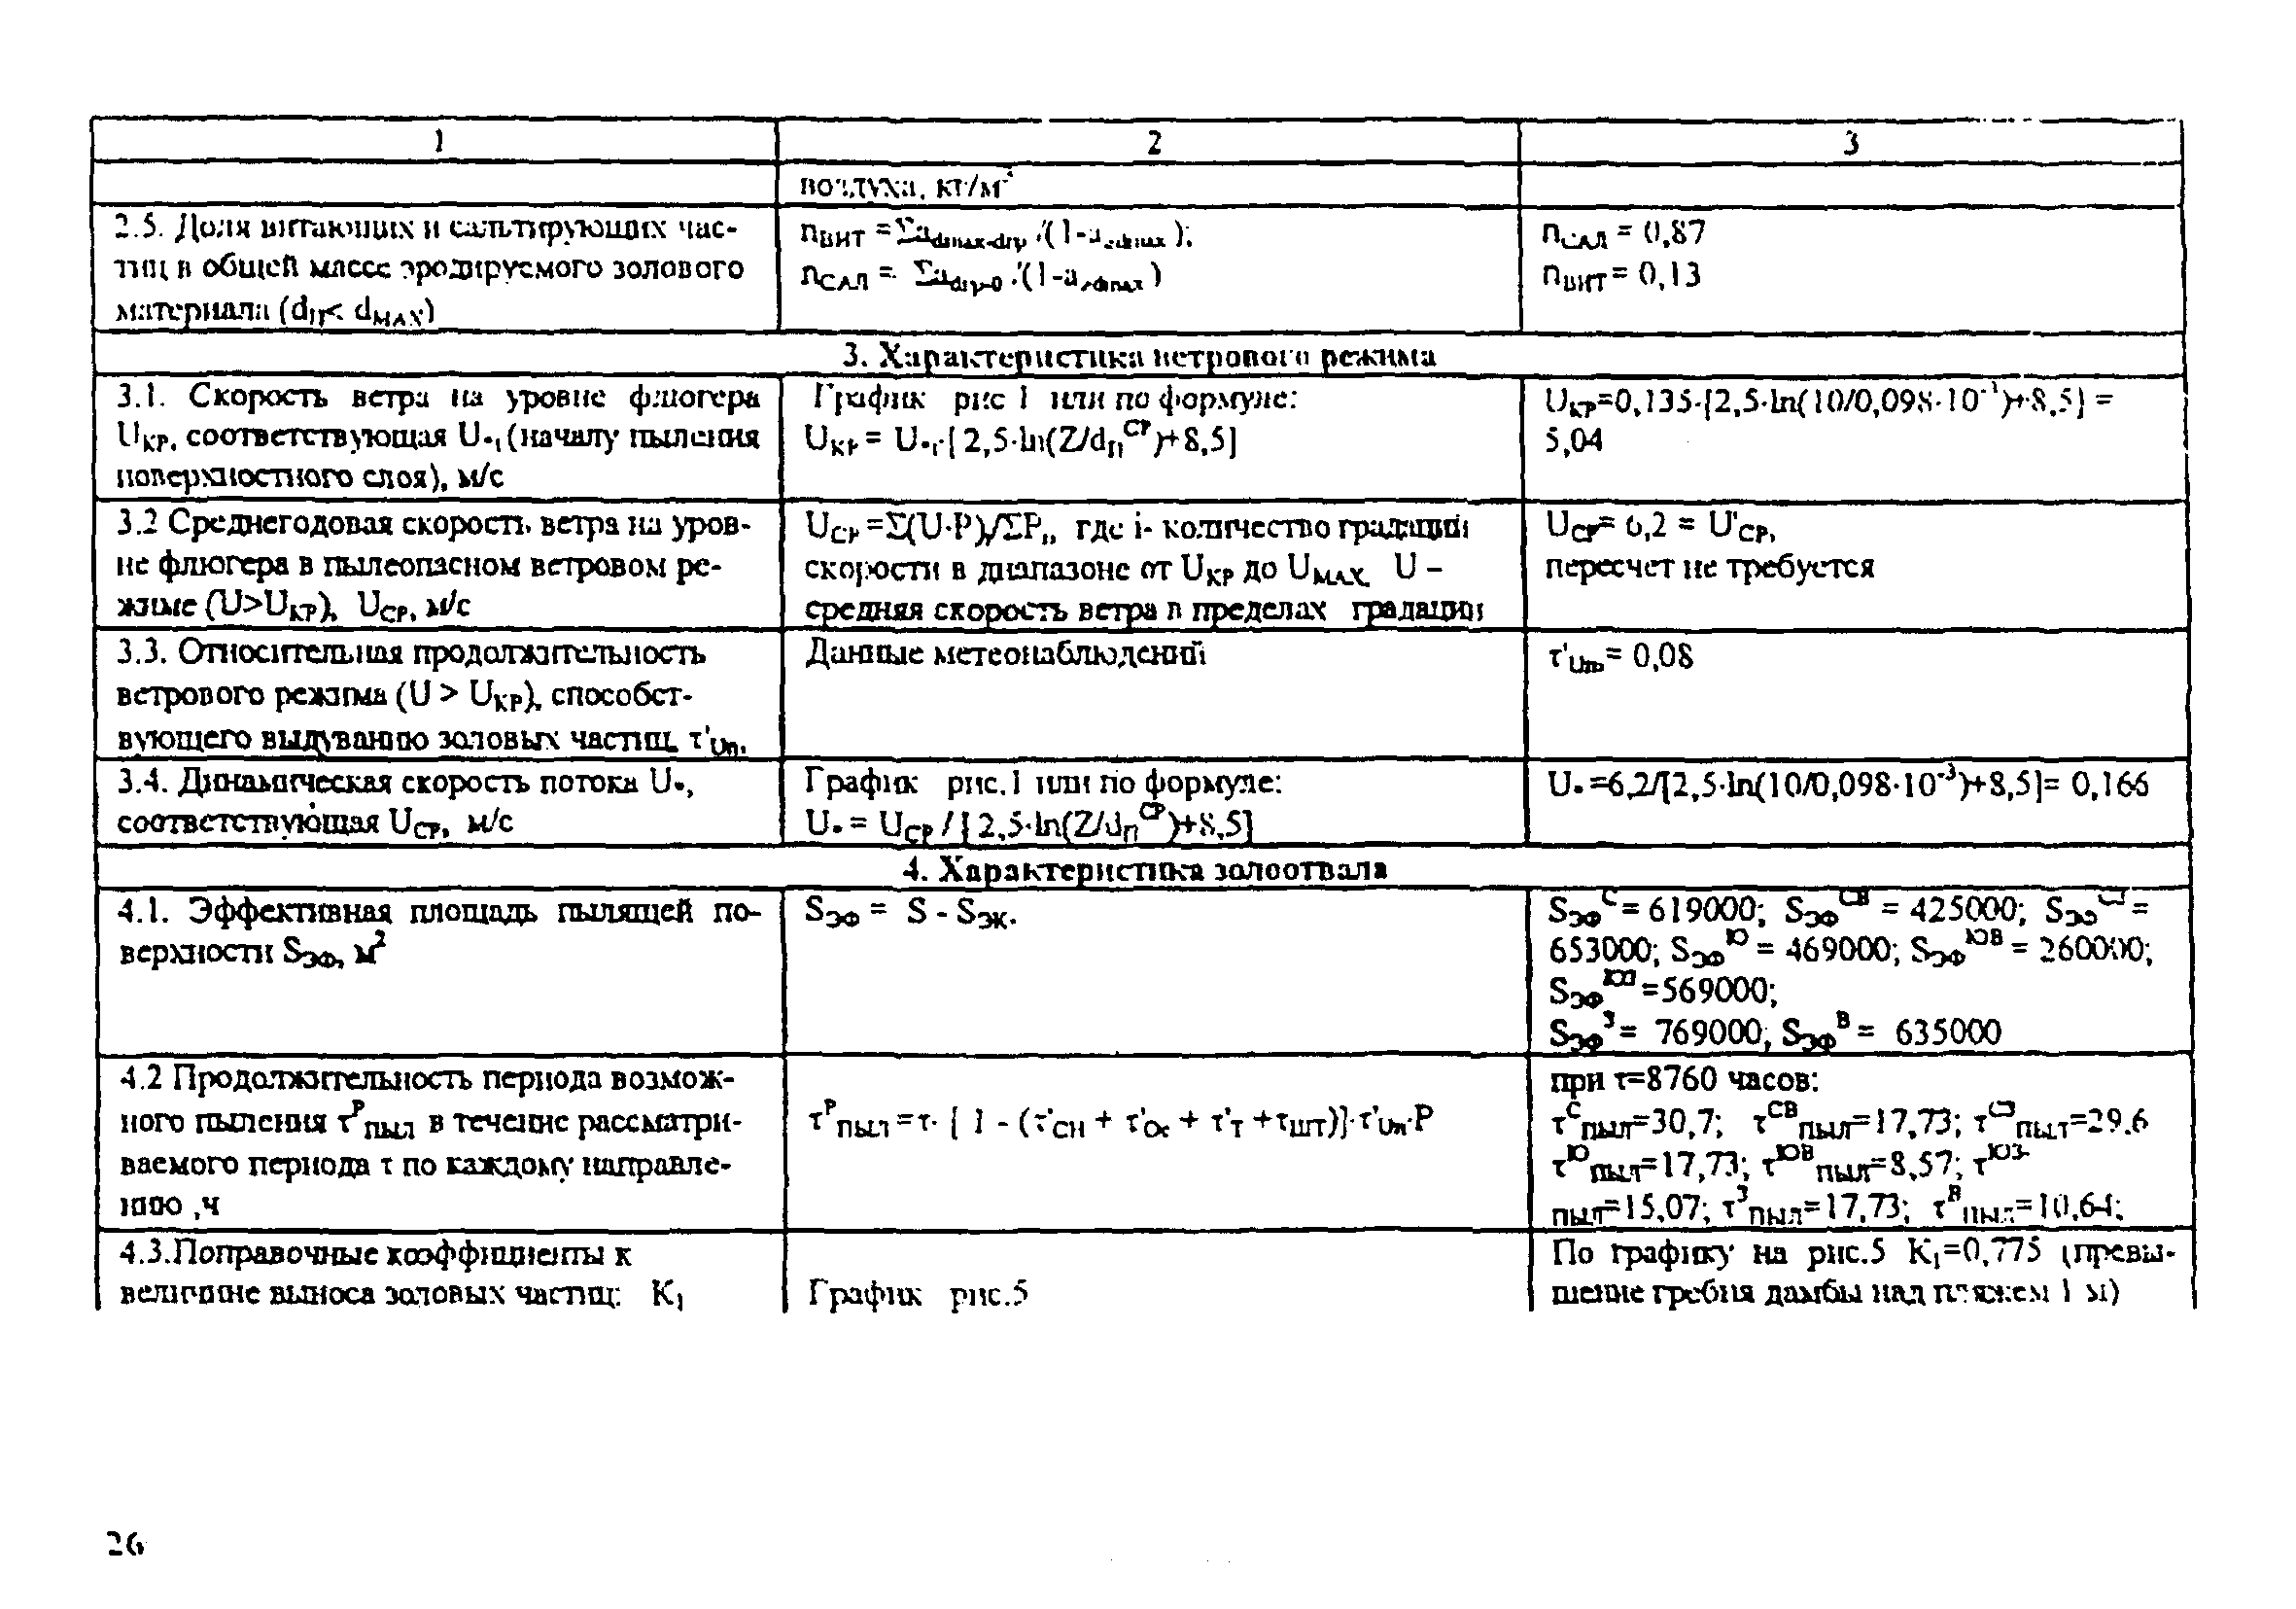 1 2 3
воздуха, кг/м³
2.5. Доля витающих и сальтирующих час-
тиц в общей массе эродируемого золового
материала (dП< dМАХ)
nВИТ =Σadmax-dгр /(1-a>dmax );
nСАЛ = Σadгр-0 /(1-a>dmax )
nСАЛ = 0,87
nВИТ = 0,13
3. Характеристика ветрового режима
3.1. Скорость ветра на уровне флюгера
UКР, соответствующая U*t (началу пыления
поверхностного слоя), м/с
График рис 1 или по формуле:
UКР = U*t·[2,5·ln(Z/dПСР)+8,5]
UКР=0,135·[2,5·ln(10/0,098·10⁻¹)+8,5] =
5,04
3.2 Среднегодовая скорость ветра на уров-
не флюгера в пылеопасном ветровом ре-
жиме (U>UКР), UСР, м/с
UСР =Σ(U·P)i/ΣPi, где i- количество градаций
скорости в диапазоне от UКР до UМАХ, U –
средняя скорость ветра в пределах градации
UСР= 6,2 = U'СР,
пересчет не требуется
3.3. Относительная продолжительность
ветрового режима (U > UКР), способст-
вующего выдуванию золовых частиц, τ'Uп,
Данные метеонаблюдений
τ'Uп= 0,08
3.4. Динамическая скорость потока U*,
соответствующая UСР, м/с
График рис.1 или по формуле:
U* = UСР / [2,5·ln(Z/dПСР)+8,5]
U* =6,2/[2,5·ln(10/0,098·10⁻³)+8,5]= 0,166
4. Характеристика золоотвала
4.1. Эффективная площадь пылящей по-
верхности SЭФ, м²
SЭФ = S - SЭК.
SЭФС = 619000; SЭФСВ = 425000; SЭФСЗ =
653000; SЭФЮ = 469000; SЭФЮВ = 260000;
SЭФЮЗ =569000;
SЭФЗ = 769000, SЭФВ = 635000
4.2 Продолжительность периода возмож-
ного пыления τРПЫЛ в течение рассматри-
ваемого периода τ по каждому направле-
нию ,ч
τРПЫЛ =τ· [ 1 - (τ'СН + τ'Ос + τ'Т +τШТ)]·τ'Uп·P
при τ=8760 часов:
τСПЫЛ=30,7; τСВПЫЛ=17,73; τСЗПЫЛ=29,6
τЮПЫЛ=17,73; τЮВПЫЛ=8,57; τЮЗ-
ПЫЛ=15,07; τЗПЫЛ=17,73; τВПЫЛ=10,64;
4.3.Поправочные коэффициенты к
величине выноса золовых частиц: К1
График рис.5
По графику на рис.5 К1=0,775 (превы-
шение гребня дамбы над пляжем 1 м)
26